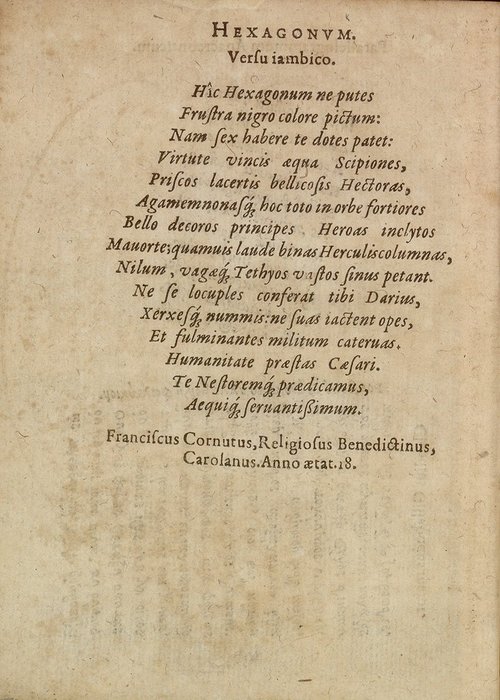 HEXAGONVM.
Verſu iambico.
Hîc Hexagonum ne putes
Fruſtra nigro colore pictum:
Nam ſex habere te dotes patet:
Virtute vincis æqua Scipiones,
Priſcos lacertis bellicoſis Hectoras,
Agamemnonaſq́; hoc toto in orbe fortiores
Bello decoros principes. Heroas inclytos
Mauorte; quamuis laude binas Herculis columnas,
Nilum, vagæq́; Tethyos vaſtos ſinus petant.
Ne ſe locuples conferat tibi Darius,
Xerxeſq́; nummis: ne ſuas iactent opes,
Et fulminantes militum cateruas.
Humanitate præſtas Cæſari.
Te Neſtoremq́; prædicamus,
Aequiq́; ſeruantiſſimum.
Franciſcus Cornutus, Religioſus Benedictinus,
Carolanus. Anno ætat. 18.